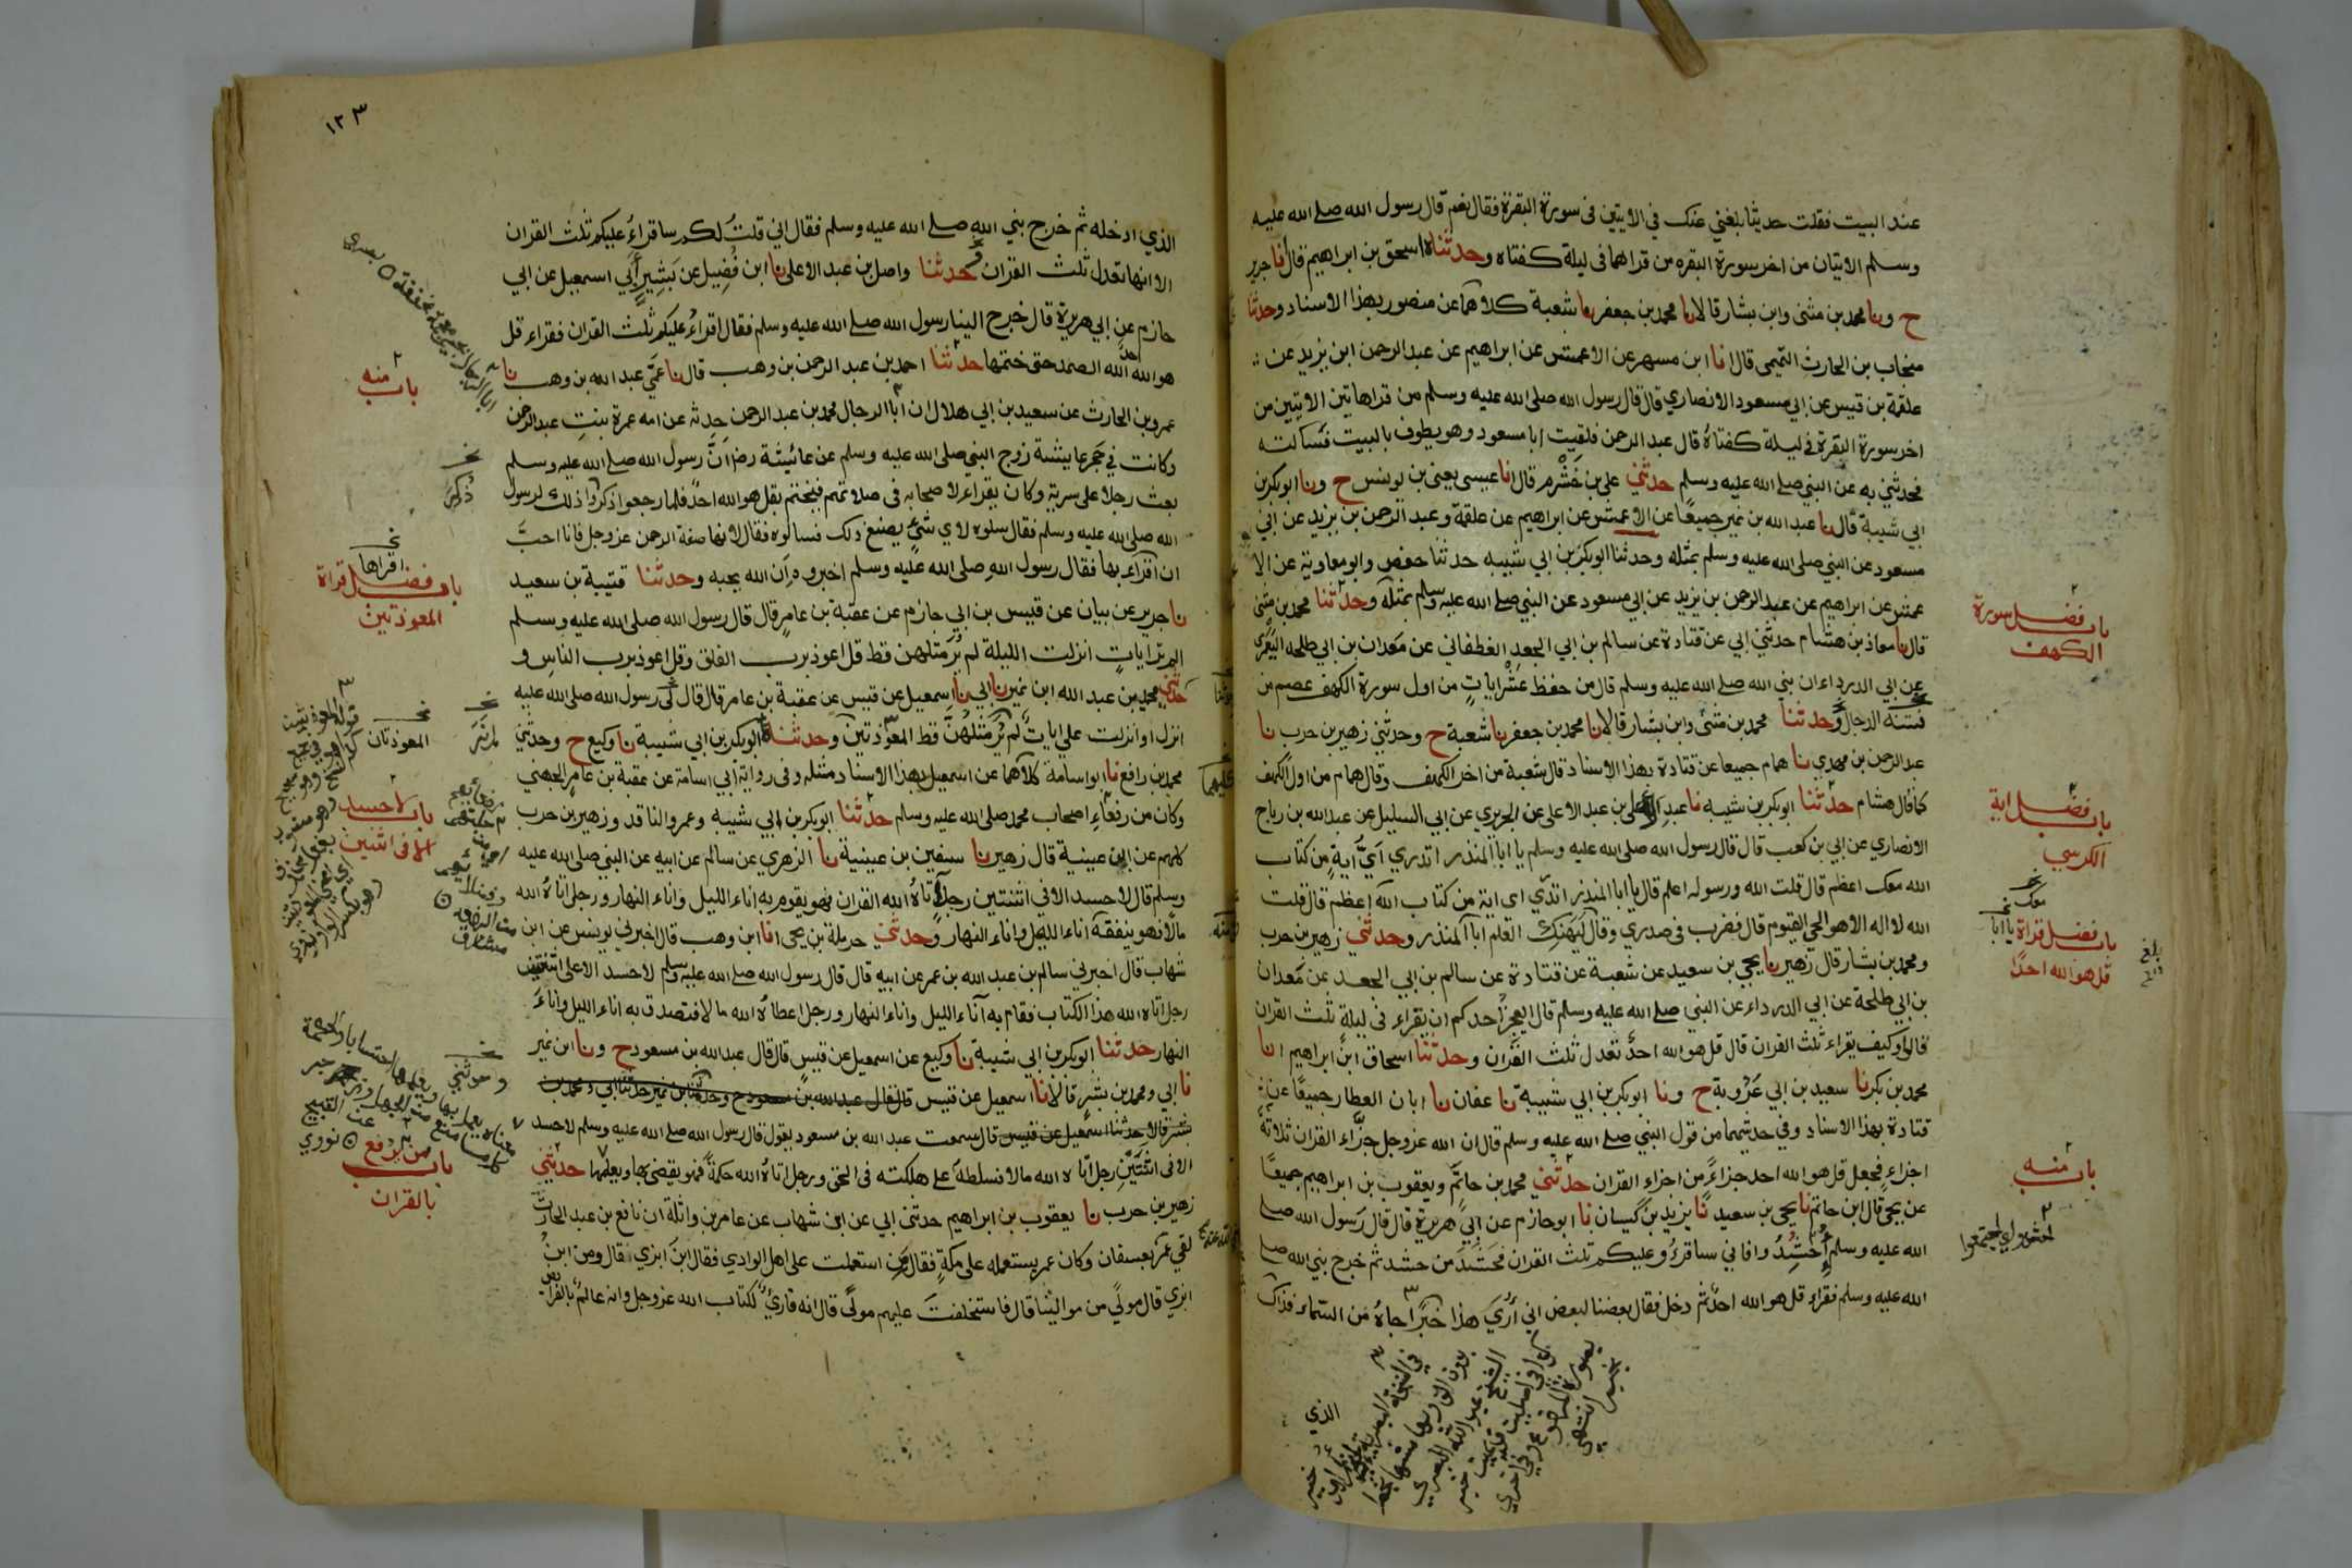 عند البيت فقلت حديثا بلغني عنك في الايتين في سورة البقرة فقال نعم قال رسول الله صلى الله عليه
وسلم الايتان من اخر سورة البقره من قراهما في ليلة كفتاه وحدثناه اسحق بن ابراهيم قال انا جرير
ح ونا محمد بن مثنى وابن بشار قالا نا محمد بن جعفر نا شعبة كلاهما عن منصور بهذا الاسناد وحدثنا
منجاب بن الحارث التميمى قال انا ابن مسهر عن الاعمش عن ابراهيم عن عبد الرحمن ابن يزيد عن
علقمة بن قيس عن ابي مسعود الانصاري قال قال رسول الله صلى الله عليه وسلم من قرا هاتين الايتين من
اخر سورة البقرة في ليلة كفتاه قال عبد الرحمن فلقيت ابا مسعود وهو يطوف بالبيت فسالته
فحدثني به عن النبي صلى الله عليه وسلم حدثني علي بن خشرم قال انا عيسى يعنى بن يونس ح ونا ابو بكر بن
ابي شيبة قال نا عبد الله بن نمير جميعا عن الاعمش عن ابراهيم عن علقمة وعبد الرحمن بن يزيد عن ابي
مسعود عن النبي صلى الله عليه وسلم بمثله وحدثنا ابو بكر بن ابي شيبه حدثنا حفص وابو معاوية عن الا
عمش عن ابراهيم عن عبد الرحمن بن يزيد عن ابي مسعود عن النبي صلى الله عليه وسلم بمثله وحدثنا محمد بن مثنى
قال نا معاذ بن هشام حدثني ابي عن قتادة عن سالم بن ابي الجعد الغطفاني عن معدان بن ابي طلحه اليعمري
عن ابي الدرداء ان نبي الله صلى الله عليه وسلم قال من حفظ عشر ايات من اول سورة الكهف عصم من
فتنة الدجال وحدثنا محمد بن مثنى وابن بشار قالا نا محمد بن جعفر نا شعبة ح وحدثني زهير بن حرب نا
عبد الرحمن بن مهدي نا همام جميعا عن قتادة بهذا الاسناد قال شعبة من اخر الكهف وقال همام من اول الكهف
كما قال هشام حدثنا ابو بكر بن شيبه نا عبد الاعلى بن عبد الاعلى عن الجريري عن ابي السليل عن عبد الله بن رباح
الانصاري عن ابي بن كعب قال قال رسول الله صلى الله عليه وسلم يا ابا المنذر اتدري اي اية من كتاب
الله معك اعظم قال قلت الله ورسوله اعلم قال يا ابا المنذر اتدري اي اية من كتاب الله اعظم قال قلت
الله لا اله الا هو الحي القيوم قال فضرب في صدري وقال ليهنك العلم ابا المنذر وحدثني زهير بن حرب
ومحمد بن بشار قال زهير نا يحيى بن سعيد عن شعبة عن قتادة عن سالم بن ابي الجعد عن معدان
بن ابي طلحة عن ابي الدرداء عن النبي صلى الله عليه وسلم قال ايعجز احدكم ان يقراء في ليلة ثلث القران
قالوا وكيف يقراء ثلث القران قال قل هو الله احد تعدل ثلث القران وحدثنا اسحاق ابن ابراهيم انا
محمد بن بكر نا سعيد بن ابي عروبة ح ونا ابو بكر بن ابي شيبة نا عفان نا ابان العطار جميعا عن
قتادة بهذا الاسناد وفي حديثهما من قول النبي صلى الله عليه وسلم قال ان الله عز وجل جزاء القران ثلاثة
اجزاء فجعل قل هو الله احد جزاء من اجزاء القران حدثني محمد بن حاتم ويعقوب بن ابراهيم جميعا
عن يحيى قال ابن حاتم نا يحيى بن سعيد نا يزيد بن كيسان نا ابو حازم عن ابي هريرة قال قال رسول الله صلى
الله عليه وسلم احشدوا فاني ساقرؤ عليكم ثلث القران فحشد من حشد ثم خرج نبي الله صلى
الله عليه وسلم فقراء قل هو الله احد ثم دخل فقال بعضنا لبعض اني أرى هذا خبرا جاه من السماء فذاك
الذي
باب فضل سورة
الكهف
باب فضل اية
الكرسي
معك
يا ابا
باب فضل قراة
قل هو الله احدا
بلغ
باب منه
١٢٣
الذي ادخله ثم خرج نبي الله صلى الله عليه وسلم فقال اني قلت لكم ساقراء عليكم ثلث القران
الا انها تعدل ثلث القران حدثنا واصل بن عبد الاعلى نا ابن فضيل عن بشير أبي اسمعيل عن ابي
حازم عن ابي هريرة قال خرج الينا رسول الله صلى الله عليه وسلم فقال اقراء عليكم ثلث القران فقراء قل
هو الله احد الله الصمد حتى ختمها حدثنا احمد بن عبد الرحمن بن وهب قال نا عمي عبد الله بن وهب نا
عمرو بن الحارث عن سعيد بن ابي هلال ان ابا الرجال محمد بن عبد الرحمن حدثه عن امه عمرة بنت عبد الرحمن
وكانت في حجر عايشة زوج النبي صلى الله عليه وسلم عن عائشة رض ان رسول الله صلى الله عليه وسلم
بعث رجلا على سرية وكان يقراء لاصحابه في صلاتهم فيختم بقل هو الله احد فلما رجعوا ذكروا ذلك لرسول
الله صلى الله عليه وسلم فقال سلوه لاي شئ يصنع ذلك فسالوه فقال لانها صفة الرحمن عز وجل فانا احب
ان اقراء بها فقال رسول الله صلى الله عليه وسلم اخبروه ان الله يحبه وحدثنا قتيبة بن سعيد
نا جرير عن بيان عن قيس بن ابي حازم عن عقبة بن عامر قال قال رسول الله صلى الله عليه وسلم
الم تر ايات انزلت الليلة لم ير مثلهن قط قل اعوذ برب الفلق وقل اعوذ برب الناس و
حدثني محمد بن عبد الله ابن نمير نا ابي نا اسمعيل عن قيس عن عقبة بن عامر قال قال لي رسول الله صلى الله عليه
انزل او انزلت علي ايات لم ير مثلهن قط المعوذتين وحدثناه ابو بكر بن ابي شيبة نا وكيع ح وحدثني
محمد بن رافع نا ابو اسامة كلاهما عن اسمعيل بهذا الاسناد مثله وفي رواية ابي اسامة عن عقبة بن عامر الجهني
وكان من رفعاء اصحاب محمد صلى الله عليه وسلم حدثنا ابو بكر بن ابي شيبه وعمرو الناقد وزهير بن حرب
كلهم عن ابن عيينة قال زهير نا سفين بن عيينة نا الزهري عن سالم عن ابيه عن النبي صلى الله عليه
وسلم قال لا حسد الا في اثنتين رجل اتاه الله القران فهو يقوم به اناء الليل واناء النهار ورجل اتاه الله
مالا فهو ينفقه اناء الليل واناء النهار وحدثني حرملة بن يحيى انا ابن وهب قال اخبرني يونس عن ابن
شهاب قال اخبرني سالم بن عبد الله بن عمر عن ابيه قال قال رسول الله صلى الله عليه وسلم لا حسد الا على اثنتين
رجل اتاه الله هذا الكتاب فقام به آناء الليل واناء النهار ورجل اعطاه الله مالا فتصدق به اناء الليل واناء
النهار حدثنا ابو بكر بن ابي شيبة نا وكيع عن اسمعيل عن قيس قال قال عبد الله بن مسعود ح ونا ابن نمير
نا ابي ومحمد بن بشر قالا نا اسمعيل عن قيس قال قال عبد الله بن مسعود ح وحدثنا ابن نمير حدثنا ابي ومحمد بن
بشر قالا حدثنا اسمعيل عن قيس قال سمعت عبد الله بن مسعود يقول قال رسول الله صلى الله عليه وسلم لا حسد
الا في اثنتين رجل اتاه الله مالا فسلطه على هلكته في الحق ورجل اتاه الله حكمة فهو يقضي بها ويعلمها حدثني
زهير بن حرب نا يعقوب بن ابراهيم حدثني ابي عن ابن شهاب عن عامر بن واثلة ان نافع بن عبد الحارث
لقي عمر بعسفان وكان عمر يستعمله على مكة فقال من استعملت على اهل الوادي فقال ابن ابزي فقال ومن ابن
ابزي قال مولي من موالينا قال فاستخلفت عليهم مولي قال انه قارئ لكتاب الله عز وجل وانه عالم بالفرائض
باب منه
اقراها
باب فضل قراة
المعوذتين
المعوذتان
باب لا حسد
الا في اثنتين
وحدثني
باب من يرفع
بالقران